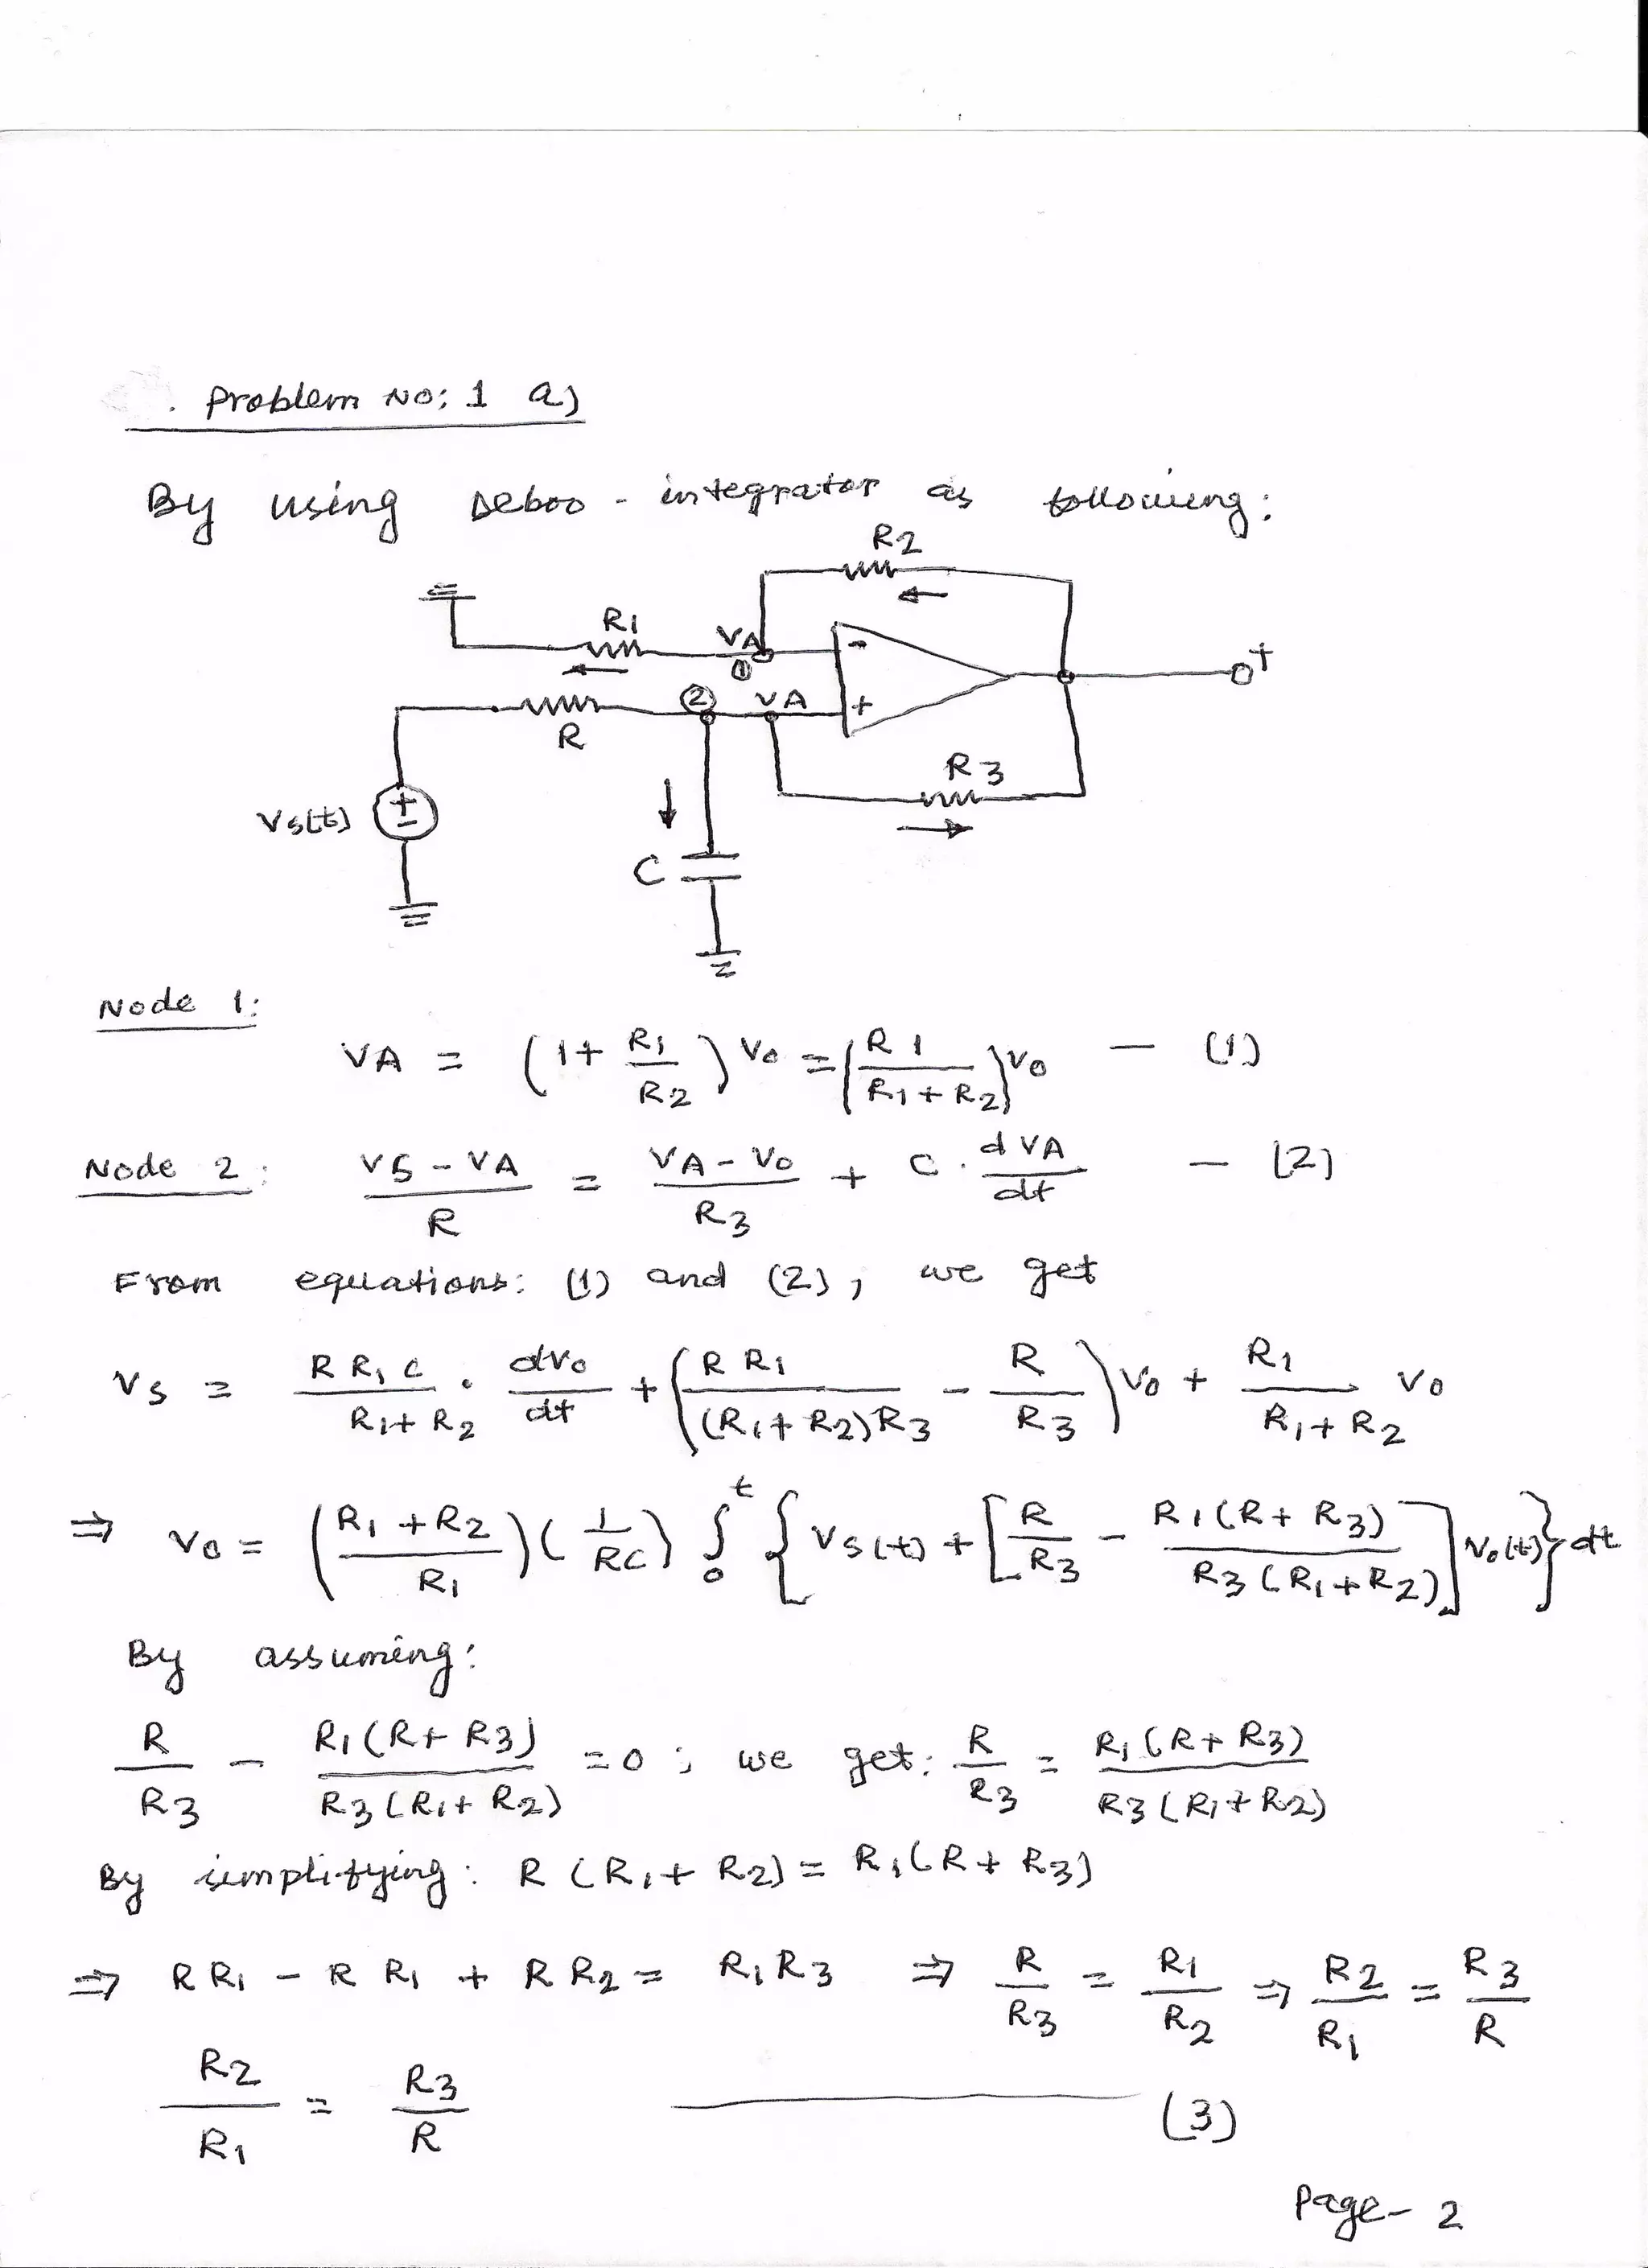 Problem No: 1 a)
By using Deboo - integrator as following:
R2
R1
VA
-
①
+
② VA
+
R
R3
Vs(t)
+
-
C
Node 1:
VA = (1 + R1/R2) Vo = (R1/(R1 + R2)) Vo — (1)
Node 2: (VS - VA)/R = (VA - Vo)/R3 + C . dVA/dt — (2)
From equations: (1) and (2), we get
Vs = (R R1 C)/(R1 + R2) . dVo/dt + (R R1/((R1 + R2)R3) - R/R3) Vo + R1/(R1 + R2) Vo
⇒ Vo = ((R1 + R2)/R1) (1/RC) ∫₀ᵗ { Vs(t) + [R/R3 - R1(R + R3)/(R3(R1 + R2))] Vo(t) } dt
By assuming:
R/R3 - R1(R + R3)/(R3(R1 + R2)) = 0 ; we get: R/R3 = R1(R + R3)/(R3(R1 + R2))
By simplifying: R(R1 + R2) = R1(R + R3)
⇒ R R1 - R R1 + R R2 = R1 R3 ⇒ R/R3 = R1/R2 ⇒ R2/R1 = R3/R
R2/R1 = R3/R — (3)
Page - 2